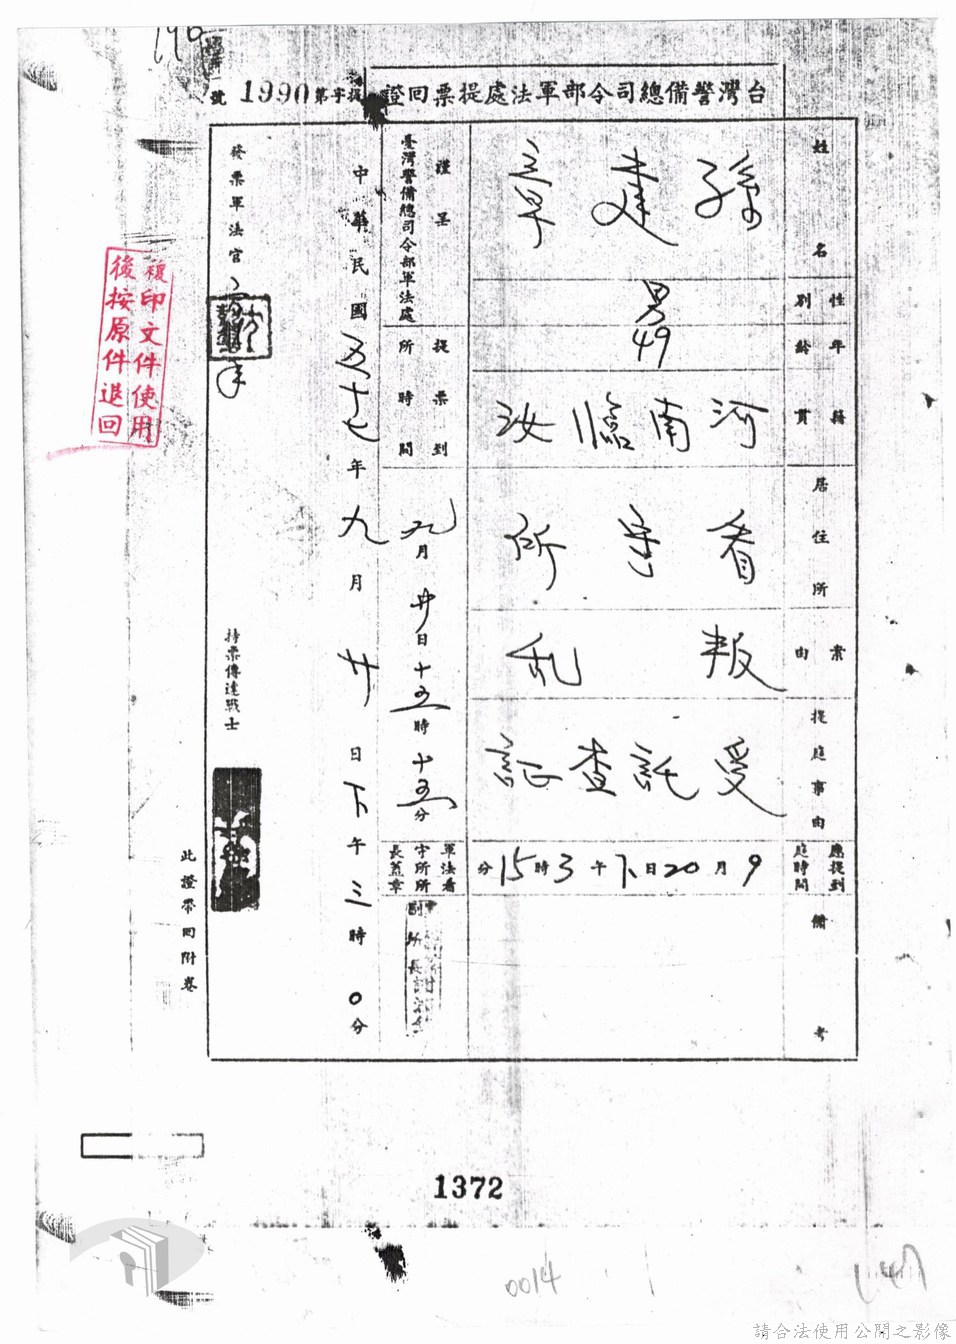 台灣警備總司令部軍法處提票回證
提字第1990號
姓名
孫建章
性別
男
年齡
49
籍貫
河南臨汝
居住所
看守所
案由
叛乱
提庭事由
受託查証
應提到庭時間
9月20日下午3時15分
備考
謹呈
臺灣警備總司令部軍法處
提票到所時間
九月廿日十五時十五分
軍法看守所所長蓋章
副所長
中華民國五十七年九月廿日下午三時0分
發票軍法官
持票傳達戰士
此證帶回附卷
複印文件使用
後按原件退回
1372
0014
請合法使用公開之影像